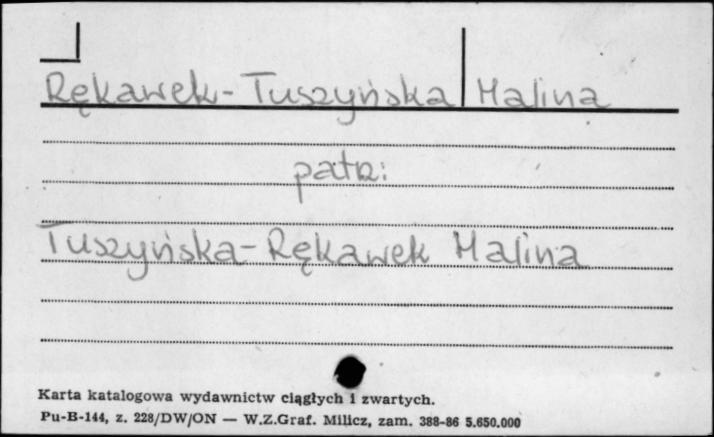 Rękawek-Tuszyńska Halina
patrz:
Tuszyńska-Rękawek Halina
Karta katalogowa wydawnictw ciągłych i zwartych.
Pu-B-144, z. 228/DW/ON — W.Z.Graf. Milicz, zam. 388-86 5.650.000